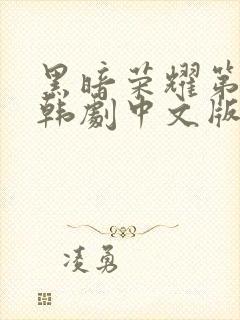 黑暗荣耀第
韩剧中文版
凌勇